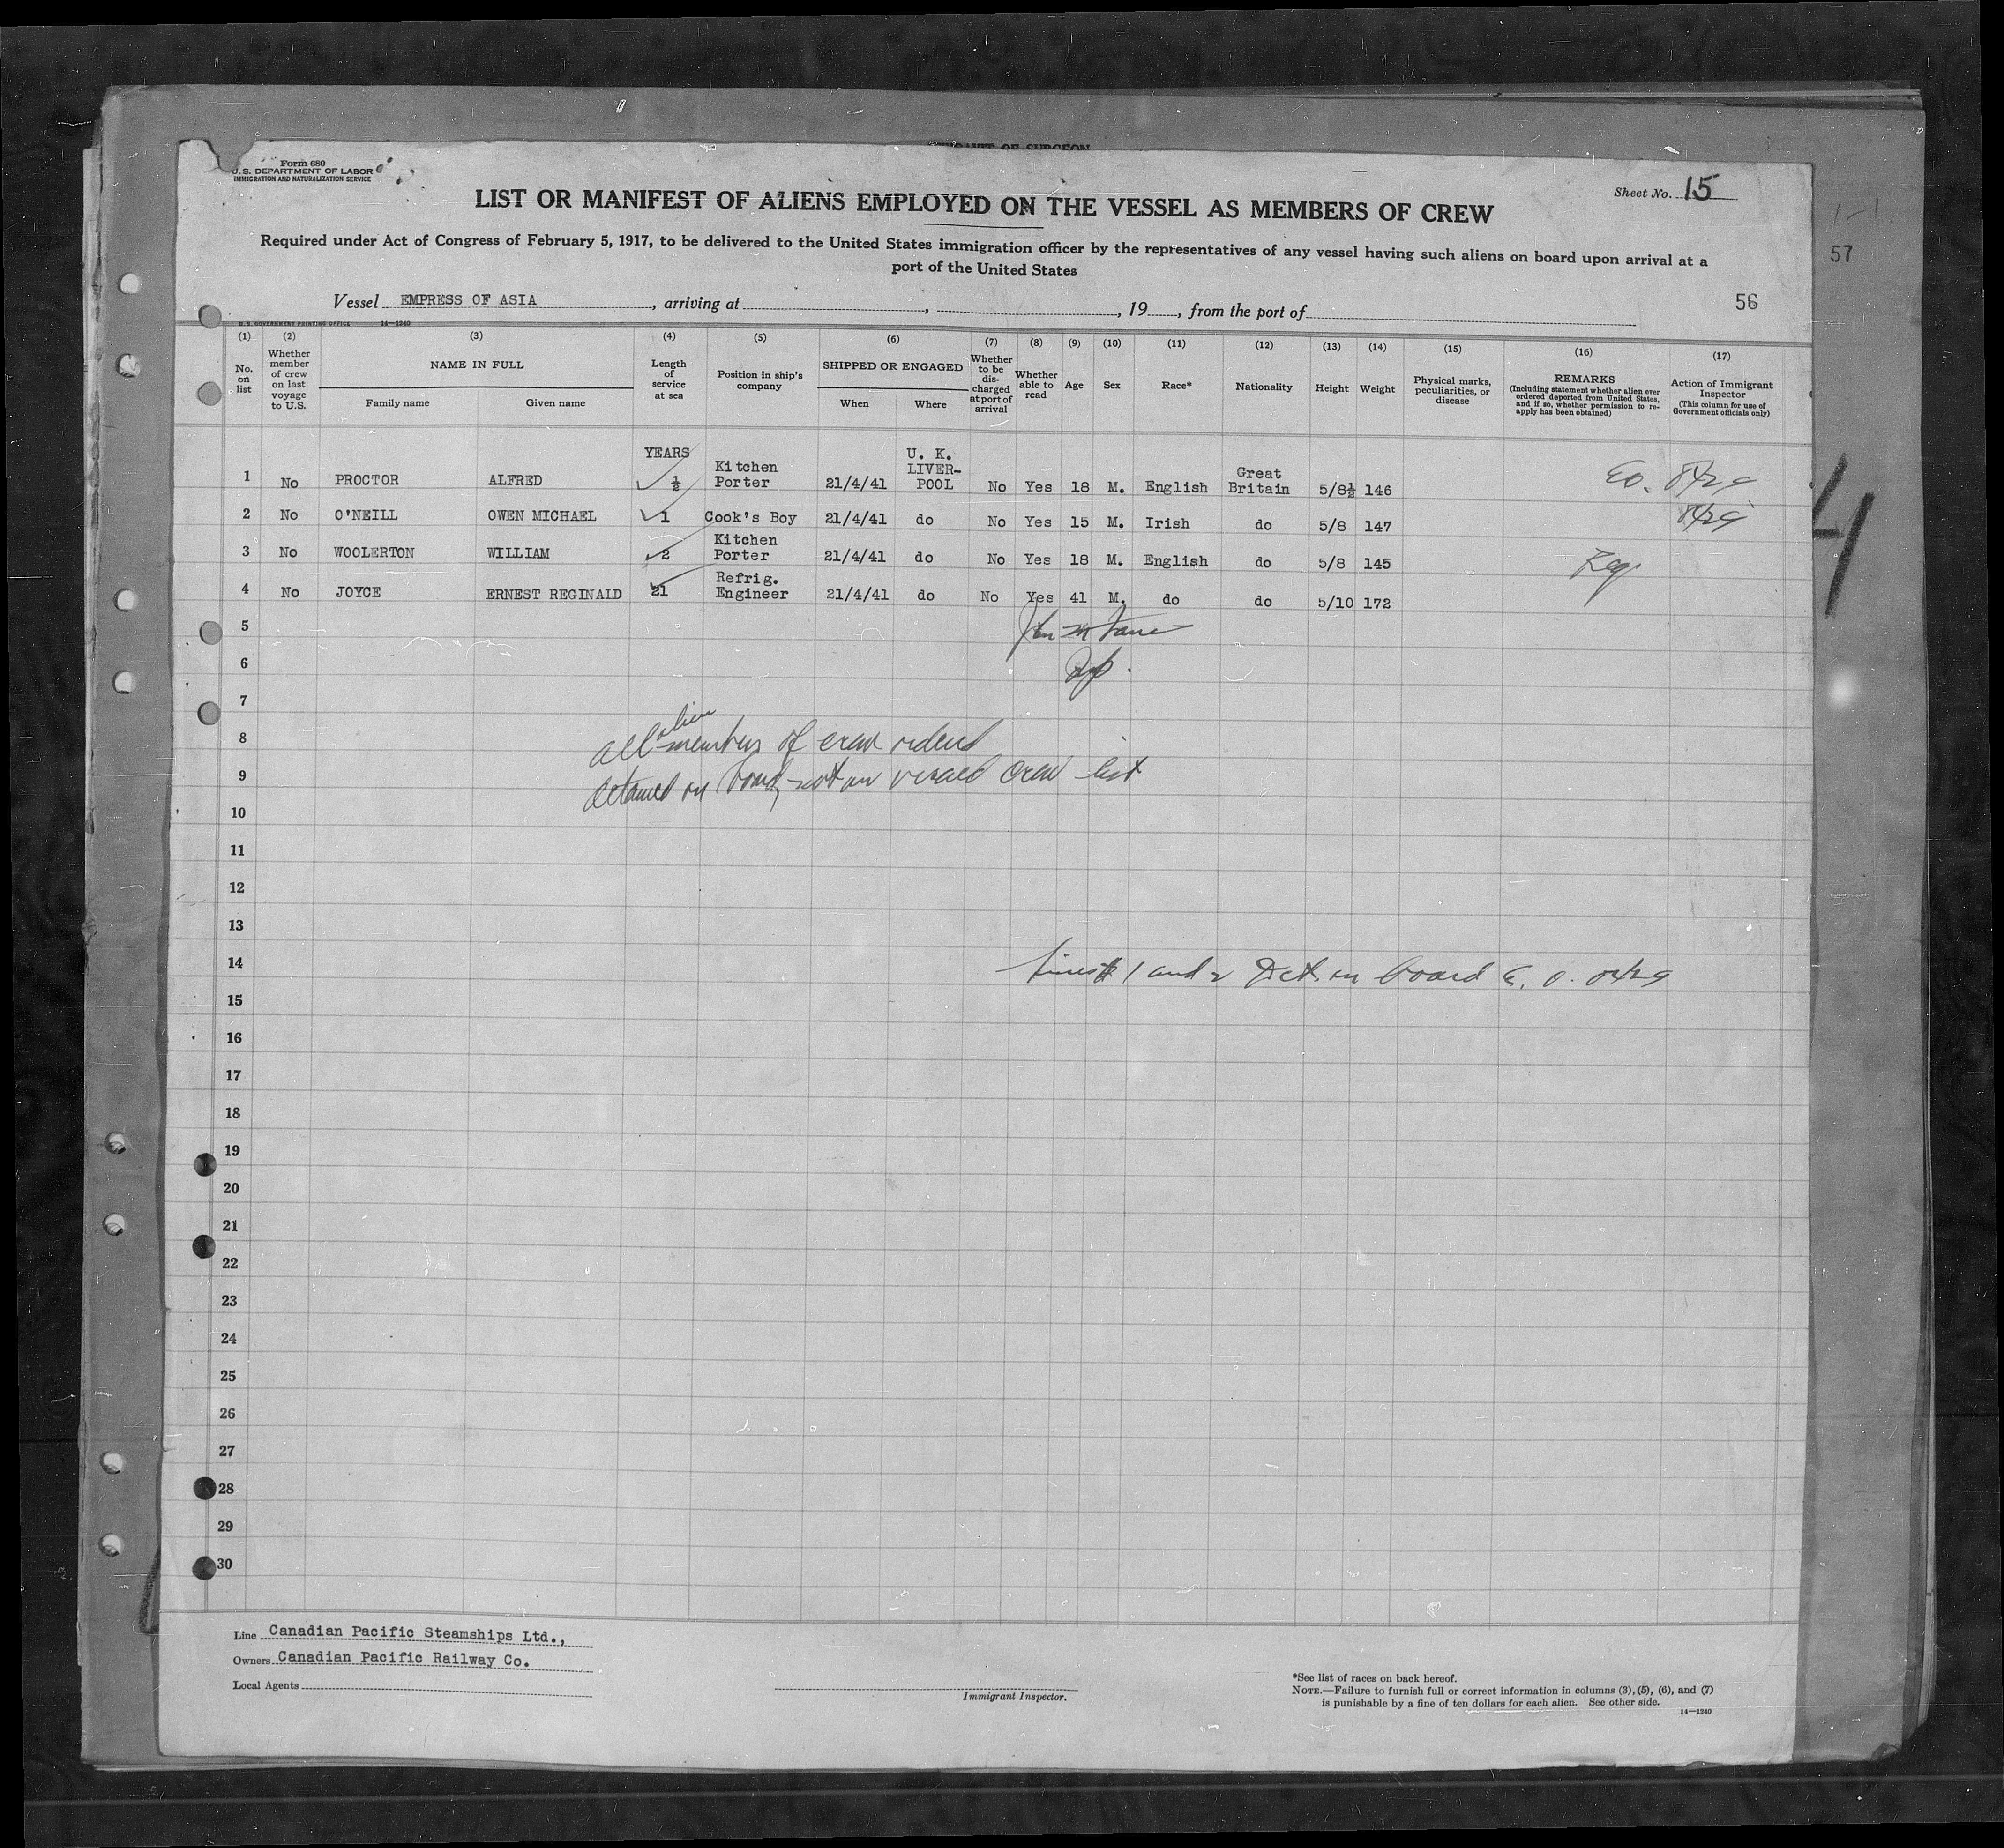 AFFIDAVIT OF SURGEON
Form 680
U.S. DEPARTMENT OF LABOR
IMMIGRATION AND NATURALIZATION SERVICE
Sheet No. 15
LIST OR MANIFEST OF ALIENS EMPLOYED ON THE VESSEL AS MEMBERS OF CREW
57
Required under Act of Congress of February 5, 1917, to be delivered to the United States immigration officer by the representatives of any vessel having such aliens on board upon arrival at a
port of the United States
Vessel EMPRESS OF ASIA, arriving at , , 19 , from the port of
56
U.S. GOVERNMENT PRINTING OFFICE 14—1240
(1) (2) (3) (4) (5) (6) (7) (8) (9) (10) (11) (12) (13) (14) (15) (16) (17)
No. on list
Whether member of crew on last voyage to U.S.
NAME IN FULL
Family name Given name
Length of service at sea
Position in ship's company
SHIPPED OR ENGAGED
When Where
Whether to be discharged at port of arrival
Whether able to read
Age
Sex
Race*
Nationality
Height
Weight
Physical marks, peculiarities, or disease
REMARKS
(Including statement whether alien ever ordered deported from United States, and if so, whether permission to reapply has been obtained)
Action of Immigrant Inspector
(This column for use of Government officials only)
YEARS
1 No PROCTOR ALFRED ½ Kitchen Porter 21/4/41 U. K. LIVERPOOL No Yes 18 M. English Great Britain 5/8½ 146
2 No O'NEILL OWEN MICHAEL 1 Cook's Boy 21/4/41 do No Yes 15 M. Irish do 5/8 147
3 No WOOLERTON WILLIAM 2 Kitchen Porter 21/4/41 do No Yes 18 M. English do 5/8 145
4 No JOYCE ERNEST REGINALD 21 Refrig. Engineer 21/4/41 do No Yes 41 M. do do 5/10 172
5
6
7
8 all alien members of crew ordered
9 detained on board, not on visaed crew list
10
11
12
13
14 1 and 2 Det. on board E. O. 8429
15
16
17
18
19
20
21
22
23
24
25
26
27
28
29
30
Line Canadian Pacific Steamships Ltd.,
Owners Canadian Pacific Railway Co.
Local Agents
Immigrant Inspector.
*See list of races on back hereof.
NOTE.—Failure to furnish full or correct information in columns (3), (5), (6), and (7)
is punishable by a fine of ten dollars for each alien. See other side.
14—1240